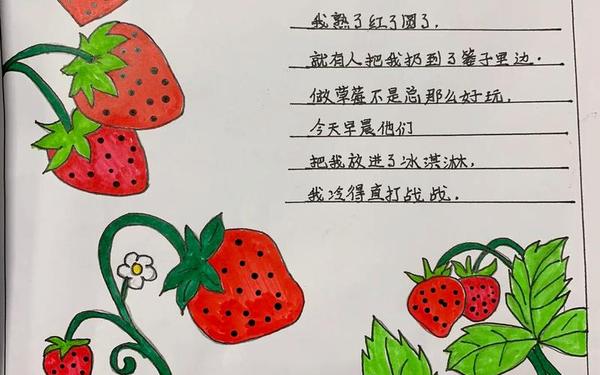 我熟了红了圆了,
就有人把我扔到了篓子里边.
做草莓不是总那么好玩,
今天早晨他们
把我放进了冰淇淋,
我冷得直打战战.